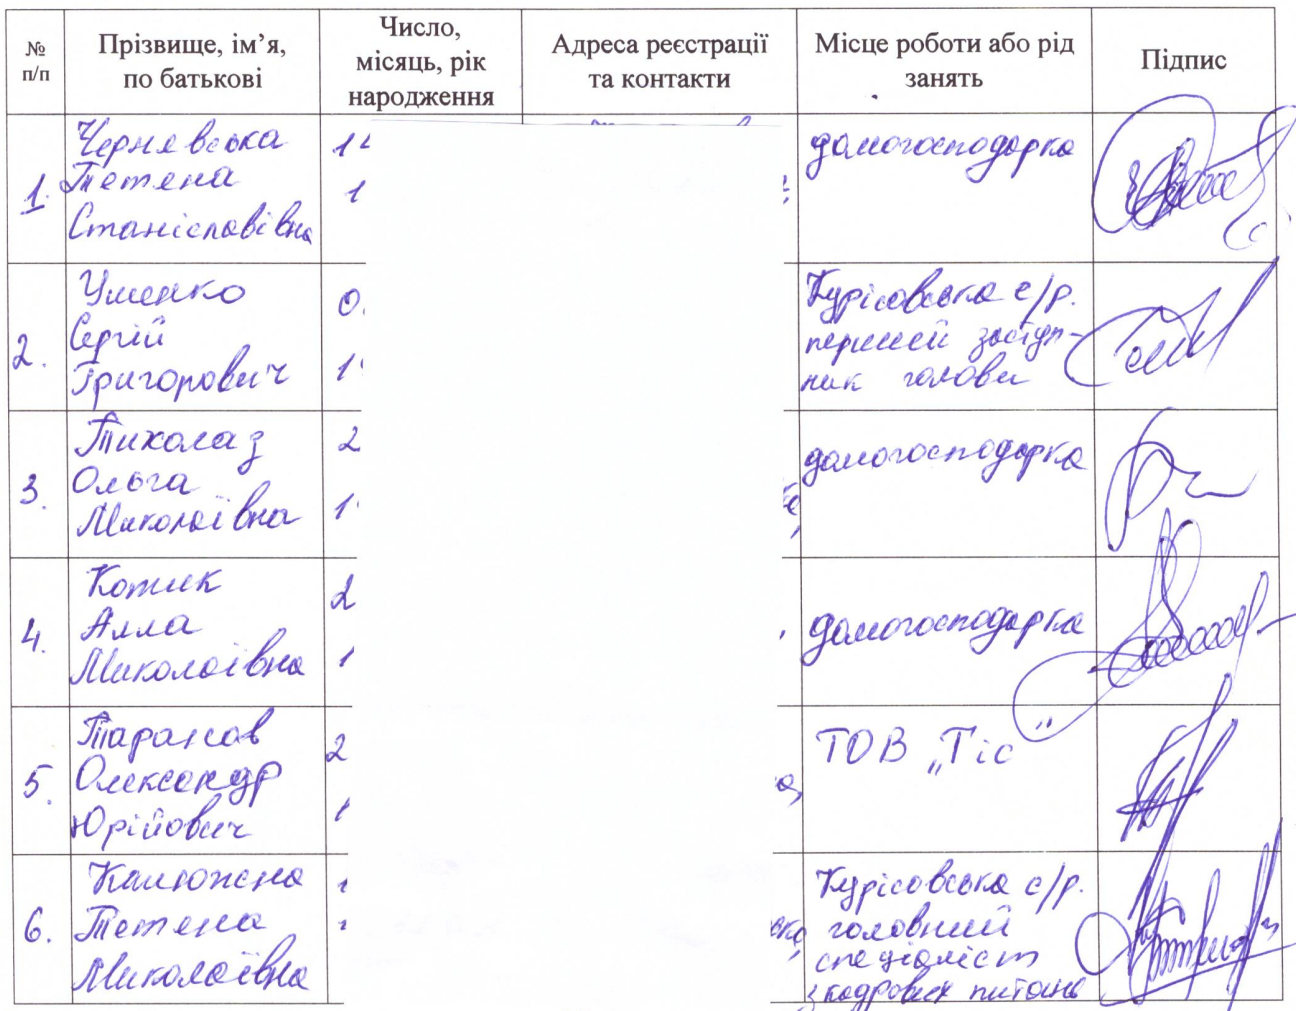 № п/п
Прізвище, ім’я, по батькові
Число, місяць, рік народження
Адреса реєстрації та контакти
Місце роботи або рід занять
Підпис
1.
Чернявська
Тетяна
Станіславівна
домогосподарка
2.
Уменко
Сергій
Григорович
Курісовська с/р.
перший заступ-
ник голови
3.
Тихолаз
Ольга
Миколаївна
домогосподарка
4.
Котик
Алла
Миколаївна
домогосподарка
5.
Таранов
Олександр
Юрійович
ТОВ „Тіс“
6.
Калюжна
Тетяна
Миколаївна
Курісовська с/р.
головний
спеціаліст
з кадрових питань